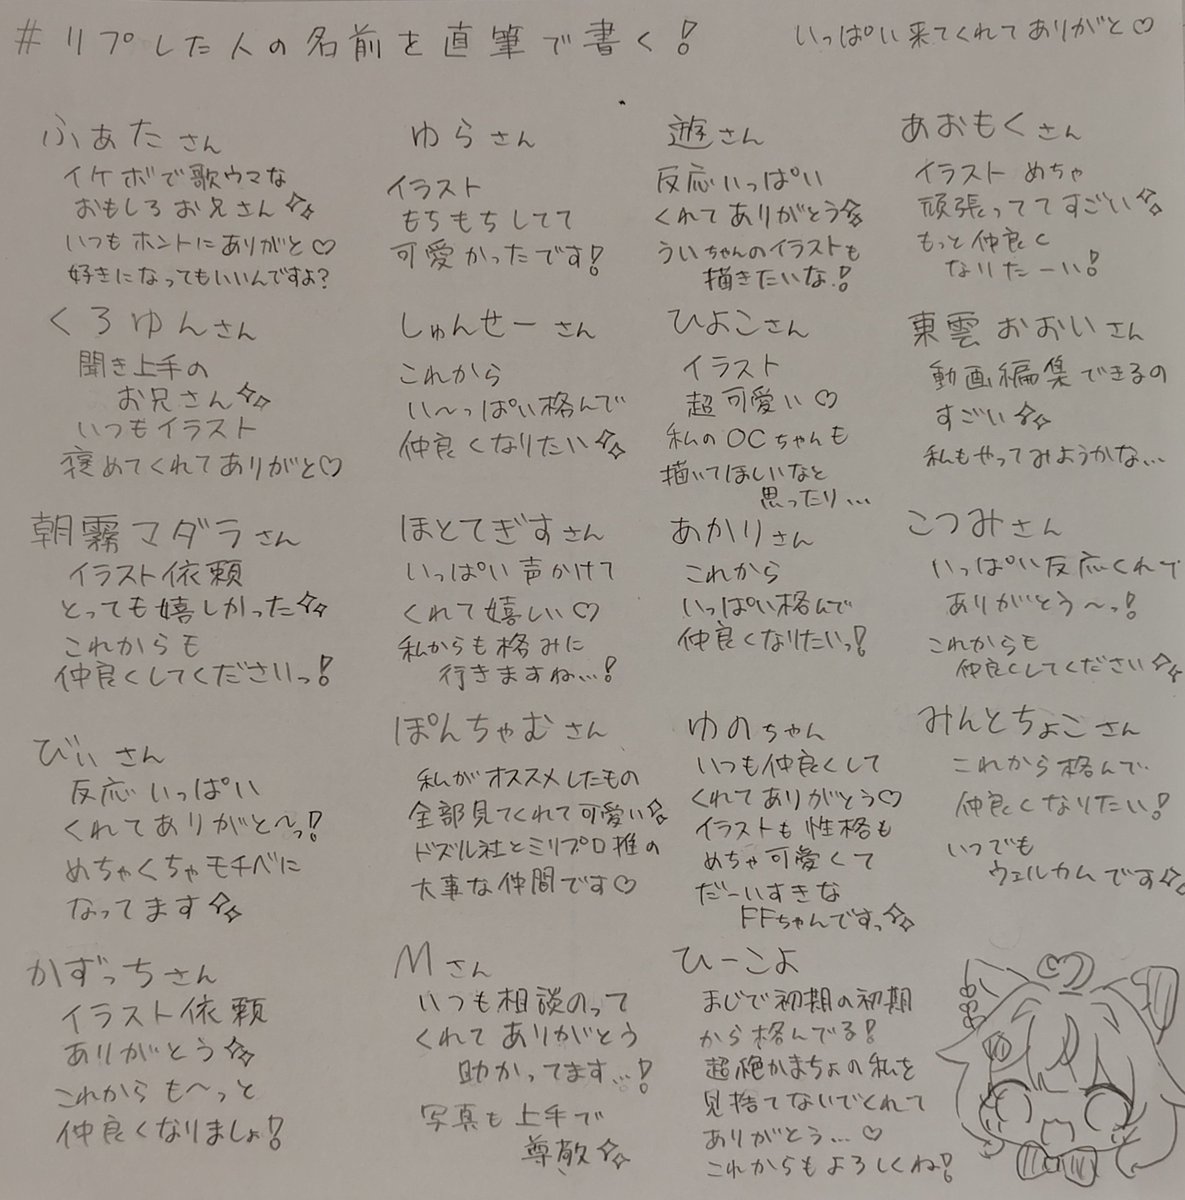 #リプした人の名前を直筆で書く!
いっぱい来てくれてありがと♡
ふぁたさん
イケボで歌ウマな
おもしろお兄さん✨
いつもホントにありがと♡
好きになってもいいんですよ?
ゆらさん
イラスト
もちもちしてて
可愛かったです!
遊さん
反応いっぱい
くれてありがとう✨
ういちゃんのイラストも
描きたいな!
あおもくさん
イラストめちゃ
頑張っててすごい✨
もっと仲良く
なりたーい!
くろゆんさん
聞き上手の
お兄さん✨
いつもイラスト
褒めてくれてありがと♡
しゅんせーさん
これから
い〜っぱい格んで
仲良くなりたい✨
ひよこさん
イラスト
超可愛い♡
私のOCちゃんも
描いてほしいなと
思ったり…
東雲おおいさん
動画編集できるの
すごい✨
私もやってみようかな…
朝霧マダラさん
イラスト依頼
とっても嬉しかった✨
これからも
仲良くしてくださいっ!
ほとてぎすさん
いっぱい声かけて
くれて嬉しい♡
私からも格みに
行きますね…!
あかりさん
これから
いっぱい格んで
仲良くなりたいっ!
こつみさん
いっぱい反応くれて
ありがとう〜っ!
これからも
仲良くしてください✨
びぃさん
反応いっぱい
くれてありがと〜っ!
めちゃくちゃモチベに
なってます✨
ぽんちゃむさん
私がオススメしたもの
全部見てくれて可愛い✨
ドズル社とミリプロ推の
大事な仲間です♡
ゆのちゃん
いつも仲良くして
くれてありがとう♡
イラストも性格も
めちゃ可愛くて
だーいすきな
FFちゃんですっ✨
みんとちょこさん
これから格んで
仲良くなりたい!
いつでも
ウェルカムです✨
かずっちさん
イラスト依頼
ありがとう✨
これからも〜っと
仲良くなりましょ!
Mさん
いつも相談のって
くれてありがとう
助かってます…!
写真も上手で
尊敬✨
ひーこよ
まじで初期の初期
から格んでる!
超絶かまちょの私を
見捨てないでくれて
ありがとう…♡
これからもよろしくね!